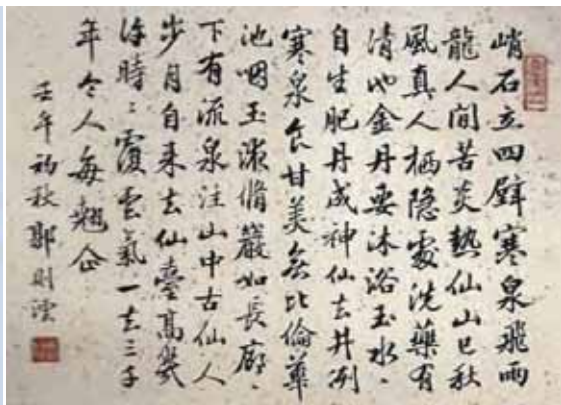 峭石立四壁寒泉飛兩
龍人間苦炎熱仙山已秋
風真人栖隱處洗藥有
清池金丹要沐浴玉水、
自生肥丹成神仙去井冽
寒泉食甘美無比倫華
池咽玉液脩巖如長廊、
下有流泉注山中古仙人
步月自来去仙臺高幾
許時〻覆雲氣一去三千
年令人每翹企
壬午初秋郭則澐